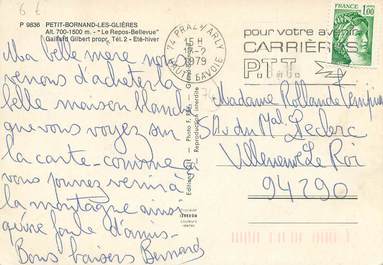 6 €
P 9836 PETIT-BORNAND-LES-GLIÈRES
Alt. 700-1500 m. - "Le Repos-Bellevue"
Gaillard Gilbert propr. Tél. 2 - Eté-hiver
74 PRAZ/ARLY
15 H
17-2
1979
HAUTE-SAVOIE
pour votre avenir
CARRIÈRES
P.T.T.
FRANCE
1,00
Ma belle mère nous
venons d'acheter la
belle maison blanche
que vous voyez sur
la carte - comme ça
vous pourrez venir à
la montagne ainsi
qu'une foule d'amis -
Bons baisers Bernard
Reproduction interdite
Madame Rolande
du Mal Leclerc
Villeneuve Le Roi
94290